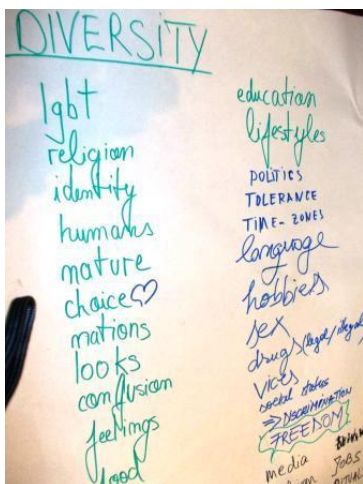 DIVERSITY
lgbt
religion
identity
humans
nature
choice♡
nations
looks
confusion
feelings
food
education
lifestyles
POLITICS
TOLERANCE
TIME-ZONES
language
hobbies
sex
drugs (legal/illegal)
vices
social status
=> DISCRIMINATION
FREEDOM
media
JOBS